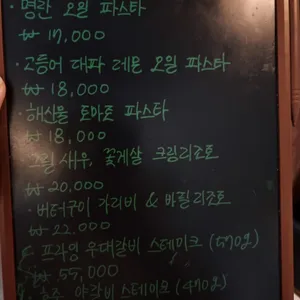 · 명란 오일 파스타
₩ 17,000
· 고등어 대파 레몬 오일 파스타
₩ 18,000
· 해산물 토마토 파스타
₩ 18,000
그릴새우, 꽃게살 크림리조또
₩ 20,000
· 버터구이 가리비 & 바질리조또
₩ 22,000
프라임 우대갈비 스테이크 (570g)
₩ 55,000
호주 양갈비스테이크 (470g)